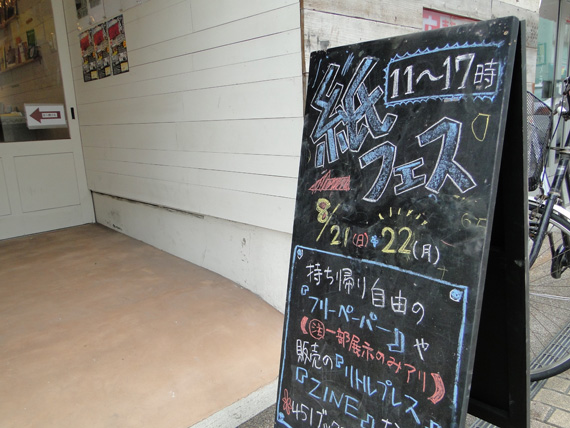 11〜17時
紙
フェス
8/21(日)・22(月)
持ち帰り自由の
『フリーペーパー』や
(注 一部展示のみアリ)
販売の『リトルプレス』
『ZINE』